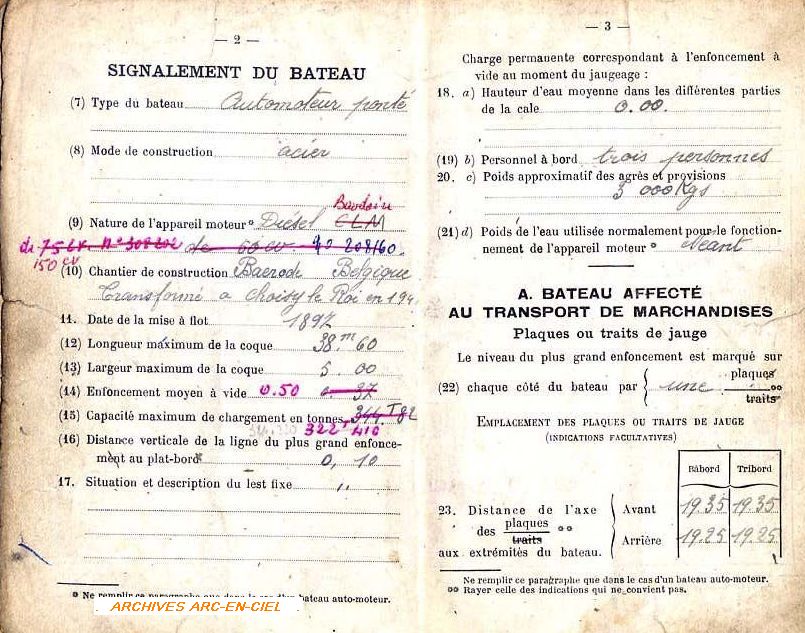 — 2 —
SIGNALEMENT DU BATEAU
(7) Type du bateau Automoteur ponté
(8) Mode de construction acier
Baudoin
(9) Nature de l'appareil moteur* Diésel CLM
de 75 cv. N° 308202 de 60 cv No 208160.
150 cv
(10) Chantier de construction Baerode Belgique
Transformé a Choisy le Roi en 194
11. Date de la mise à flot 1892
(12) Longueur maximum de la coque 38.m 60
(13) Largeur maximum de la coque 5.00
(14) Enfoncement moyen à vide 0.50 0 37
(15) Capacité maximum de chargement en tonnes 344.T 82
322T 410
(16) Distance verticale de la ligne du plus grand enfonce-
ment au plat-bord* 0,10
17. Situation et description du lest fixe ,,
* Ne remplir ce paragraphe que dans le cas d'un bateau auto-moteur.
ARCHIVES ARC-EN-CIEL
— 3 —
Charge permanente correspondant à l'enfoncement à
vide au moment du jaugeage :
18. a) Hauteur d'eau moyenne dans les différentes parties
de la cale 0.00.
(19) b) Personnel à bord trois personnes
20. c) Poids approximatif des agrès et provisions
3 000 Kgs
(21) d) Poids de l'eau utilisée normalement pour le fonction-
nement de l'appareil moteur* Néant
A. BATEAU AFFECTÉ
AU TRANSPORT DE MARCHANDISES
Plaques ou traits de jauge
Le niveau du plus grand enfoncement est marqué sur
(22) chaque côté du bateau par une plaques traits **
EMPLACEMENT DES PLAQUES OU TRAITS DE JAUGE
(INDICATIONS FACULTATIVES)
Bâbord Tribord
23. Distance de l'axe Avant 19.35 19.35
des plaques traits **
aux extrémités du bateau. Arrière 19.25 19.25
Ne remplir ce paragraphe que dans le cas d'un bateau auto-moteur.
** Rayer celle des indications qui ne convient pas.